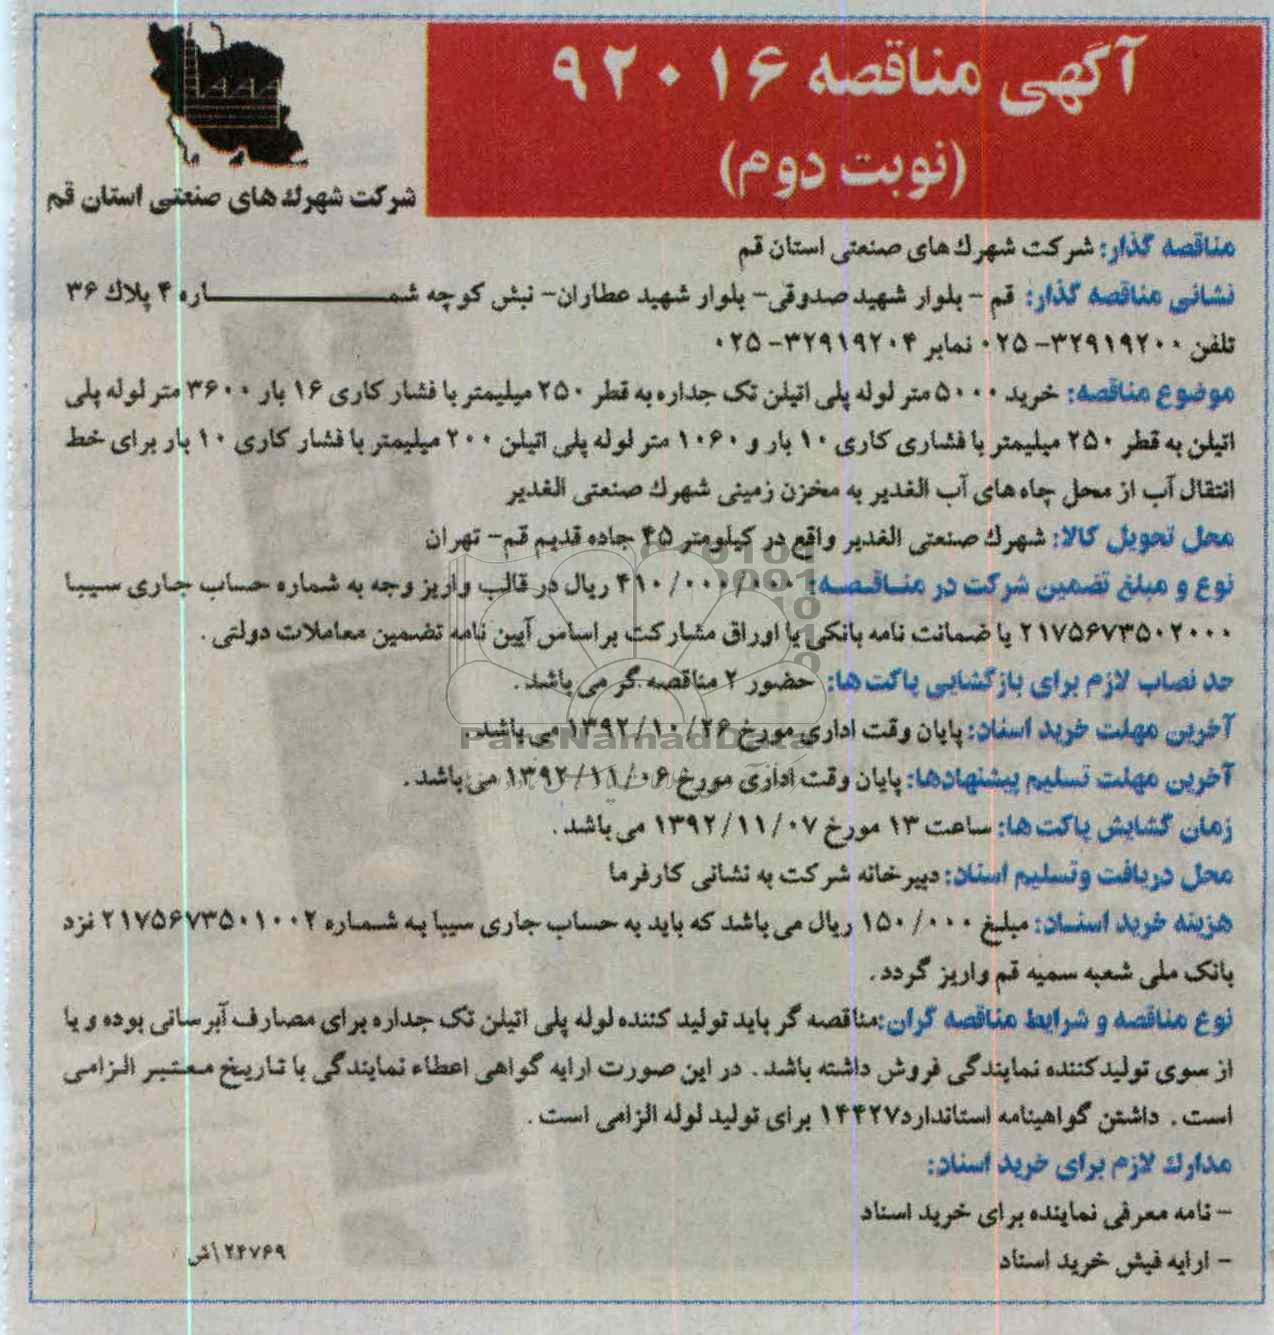 آگهی مناقصه ۹۲۰۱۶
(نوبت دوم)
شرکت شهرک های صنعتی استان قم
مناقصه گذار: شرکت شهرک های صنعتی استان قم
نشانی مناقصه گذار: قم - بلوار شهید صدوقی- بلوار شهید عطاران- نبش کوچه شمـــــاره ۴ پلاک ۳۶
تلفن ۳۲۹۱۹۲۰۰- ۰۲۵ نمابر ۳۲۹۱۹۲۰۴- ۰۲۵
موضوع مناقصه: خرید ۵۰۰۰ متر لوله پلی اتیلن تک جداره به قطر ۲۵۰ میلیمتر با فشار کاری ۱۶ بار ۳۶۰۰ متر لوله پلی
اتیلن به قطر ۲۵۰ میلیمتر با فشاری کاری ۱۰ بار و ۱۰۶۰ متر لوله پلی اتیلن ۲۰۰ میلیمتر با فشار کاری ۱۰ بار برای خط
انتقال آب از محل چاه های آب الغدیر به مخزن زمینی شهرک صنعتی الغدیر
محل تحویل کالا: شهرک صنعتی الغدیر واقع در کیلومتر ۴۵ جاده قدیم قم- تهران
نوع و مبلغ تضمین شرکت در مناقصه: ۴۱۰/۰۰۰/۰۰۰ ریال در قالب واریز وجه به شماره حساب جاری سیبا
۲۱۷۵۶۷۳۵۰۲۰۰۰ یا ضمانت نامه بانکی یا اوراق مشارکت براساس آیین نامه تضمین معاملات دولتی .
حد نصاب لازم برای بازگشایی پاکت ها: حضور ۲ مناقصه گر می باشد .
آخرین مهلت خرید اسناد: پایان وقت اداری مورخ ۱۳۹۲/۱۰/۲۶ می باشد.
ParsNamadData
آخرین مهلت تسلیم پیشنهادها: پایان وقت اداری مورخ ۱۳۹۲/۱۱/۰۶ می باشد .
زمان گشایش پاکت ها: ساعت ۱۳ مورخ ۱۳۹۲/۱۱/۰۷ می باشد .
محل دریافت وتسلیم اسناد: دبیرخانه شرکت به نشانی کارفرما
هزینه خرید اسناد: مبلغ ۱۵۰/۰۰۰ ریال می باشد که باید به حساب جاری سیبا به شماره ۲۱۷۵۶۷۳۵۰۱۰۰۲ نزد
بانک ملی شعبه سمیه قم واریز گردد .
نوع مناقصه و شرایط مناقصه گران:مناقصه گر باید تولید کننده لوله پلی اتیلن تک جداره برای مصارف آبرسانی بوده و یا
از سوی تولیدکننده نمایندگی فروش داشته باشد . در این صورت ارایه گواهی اعطاء نمایندگی با تاریخ معتبر الزامی
است . داشتن گواهینامه استاندارد۱۴۴۲۷ برای تولید لوله الزامی است .
مدارک لازم برای خرید اسناد:
- نامه معرفی نماینده برای خرید اسناد
- ارایه فیش خرید اسناد
۲۴۷۶۹\ش